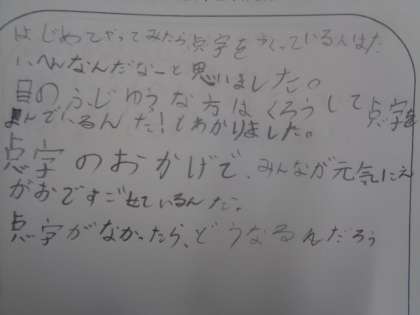 はじめてやってみたら点字をうっている人はた
いへんなんだなーと思いました。
目のふじゆうな方はくろうして点字を
よんでいるんだ!とわかりました。
点字のおかげで、みんなが元気にえ
がおですごせているんだ。
点字がなかったら、どうなるんだろう